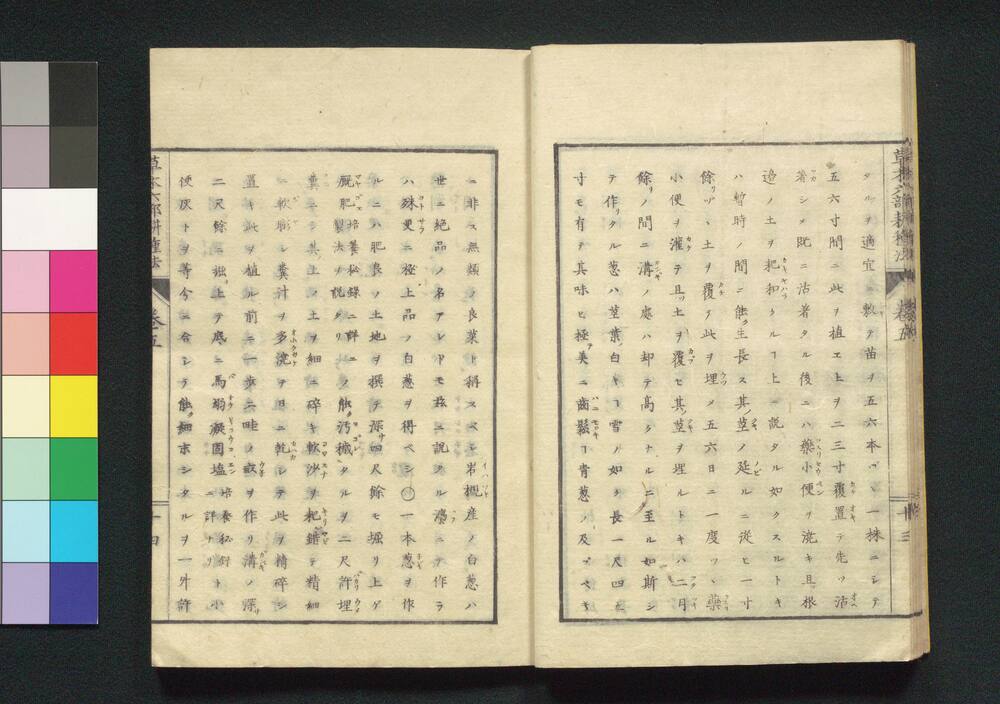 タルヲ適宜ニ敷テ苗ヲ五六本ヅヽ一株ニシテ
五六寸間ニ此ヲ植エ上ヲ二三寸覆置テ先ツ沽
著シメ既ニ沽著タル後ニハ藥小便ヲ澆キ且根
邉ノ土ヲ耙和クルヿ上ニ説タル如クスルトキ
ハ暫時ノ間ニ能ク生長ス其ノ莖ノ延ルニ從ヒ一寸
餘リヅヽ土ヲ覆テ此ヲ埋メ五六日ニ一度ツヽ藥
小便ヲ灌テ且ツ土ヲ覆セ其莖ヲ埋ルトキハ二月
餘リノ間ニ溝ノ處ハ却テ高クナルニ至ル如斯シ
テ作リタル葱ハ莖葉ノ白キヿ雪ノ如ク長一尺四五
寸モ有テ其味ヒ極美ニ齒鬆ヿ青葱ノ及ブベキ
草木六部耕種法 卷五 十三
ニ非ス無類ノ良菜ト稱スベシ岩槻産ノ白葱ハ
世ニ絶品ノ名アレドモ茲ニ説クル濃ニテ作ラ
ハ殊更ニ極上品ノ白葱ヲ得ベシ〇一本葱ヲ作
ルニハ肥良ノ土地ヲ撰テ深サ四尺餘モ堀リ上ゲ
厩肥 培養秘録ニ詳ニ製法ヲ説タリ ノ能ク汚穢タルヲ二尺許埋
糞シ其上ノ土ヲ細ニ碎キ軟沙ヲ耙錯テ精細
ニ軟膨シ糞汁ヲ多澆ヲ日ニ乾シテ此ヲ精碎シ
置キ此ヲ植ル前ニ一歩ニ二畦ノ畝ヲ作リ溝ノ深サ
二尺餘ニ掘上テ底ニ馬溺凝固塩 培養秘録ニ詳ナリ ト小
便灰トヲ等分ニ合シテ能ク細末シタルヲ一升許
草木六部耕種法 卷五 十四